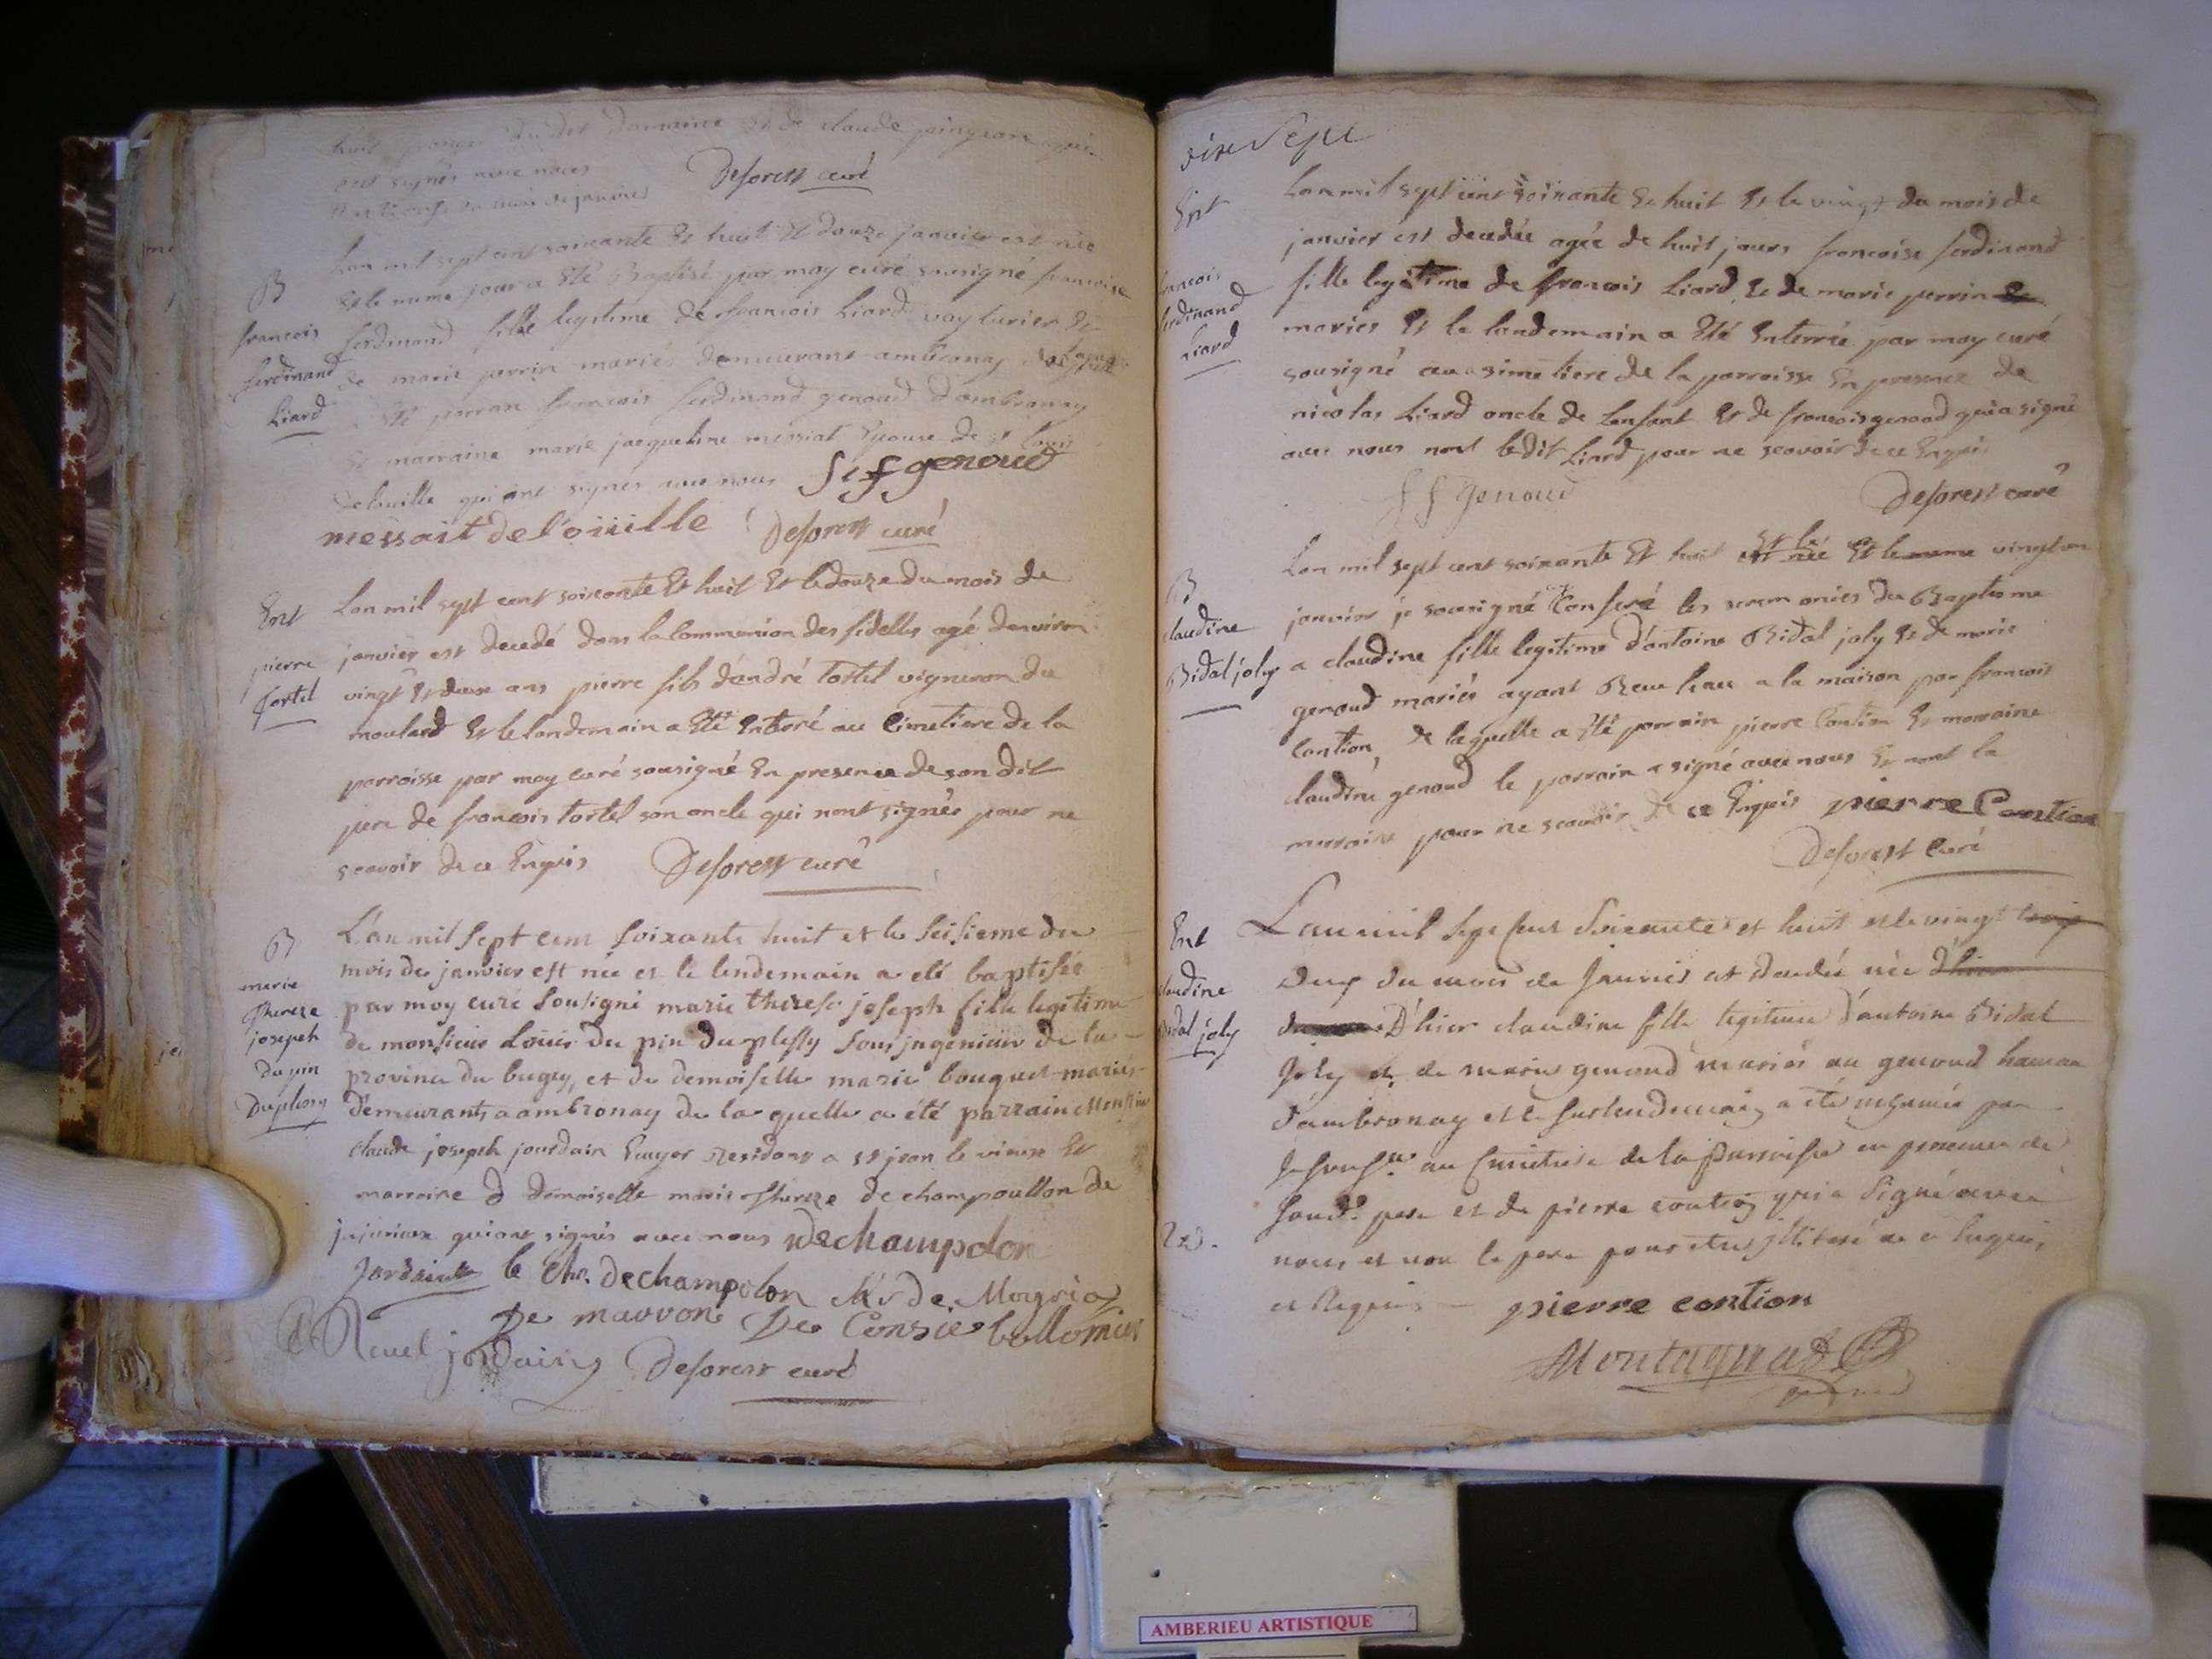 dudit domaine et de claude pingeon qui
ont signés avec nous
Deforest curé
Lan mil sept cent soixante Et huit Et douze janvier est née
B
Et le meme jour a Eté Baptisé par moy curé sousigné francoise
francois
ferdinand fille legitime de francois Liard voyturier Et
ferdinand
de marie perrin mariés demeurant ambronay
Liard
Eté parran francois ferdinand genoud dambronay
Et marraine marie jacqueline messiat Epouse de
delouille qui ont signes avec nous genoud
messait de l'oüille Deforest curé
Ent
Lan mil sept cent soixante Et huit Et le douze du mois de
janvier est decedé dans la Communion des fidelles agé denviron
pierre
tortel
vingt Et deux ans pierre fils d'andré tortel vigneron du
moulard Et le landemain a Eté Enterré au Cimetiere de la
parroisse par moy curé sousigné En presence de son dit
pere de francois tortel son oncle qui nont signés pour ne
scavoir de ce Enquis Deforest curé
B
L'an mil sept cent soixante huit et le seisieme du
mois de janvier est née et le lendemain a eté baptisée
marie
therese
joseph
dupin
Duplessy
par moy curé sousigné marie therese joseph fille legitime
de monsieur Loüis Du pin Duplessy sous jngenieur de la
province du bugey, et de demoiselle marie bouquet mariés
demeurants a ambronay de la quelle a été parrain Monsieur
claude joseph jourdain Ecuyer residant a st jean le vieux Et
marraine d demoiselle marie therese de champoullon de
jujurieux qui ont signés avec nous Dechampolon
Jordain le Chr. dechampolon de Mogria
De mauvoné De Consie bollomier
Ravel jordain Deforest curé
dix Sept
Ent
Lan mil sept cent soixante Et huit Et le vingt du mois de
janvier est decedée agée de huit jours francoise ferdinand
francois
ferdinand
Liard
fille legitime de francois Liard Et de marie perrin
mariés Et le landemain a Eté Enterrée par moy curé
sousigné au simetiere de la parroisse En presence de
nicolas Liard oncle de Lenfant Et de francois genoud qui a signé
avec nous nont ledit Liard pour ne scavoir de ce Enquis
ff genoud Deforest curé
B
Lan mil sept cent soixante Et huit est née Et le meme vingt un
Et le
janvier je sousigné ay Conferé les ceremonies du Baptisme
claudine
Bidal joly
a claudine fille legitime d'antoine Bidal joly Et de marie
genoud mariés ayant Recu leau a la maison par francois
Contion, de laquelle a Eté parrain pierre Contion Et marraine
claudine genoud le parrain a signé avec nous Et nont la
marraine pour ne scavoir de ce Enquis pierre Contion
Deforest Curé
Ent
L'an mil sept cent soixante et huit et le vingt trois
deux du mois de Janvier est decedée née d'hier
claudine
Bidal joly
D'hier claudine fille legitime d'antoine Bidal
Joly et de marie genoud mariés au genoud hameau
d'ambronay et le surlendemain a été inhumée par
Je sousné au Cimetiere de la Parroisse en presence de
soud. pere et de pierre contion qui a signé avec
nous et non le pere pour etre illiteré de ce Enquis
et Requis — pierre contion
Montagnat